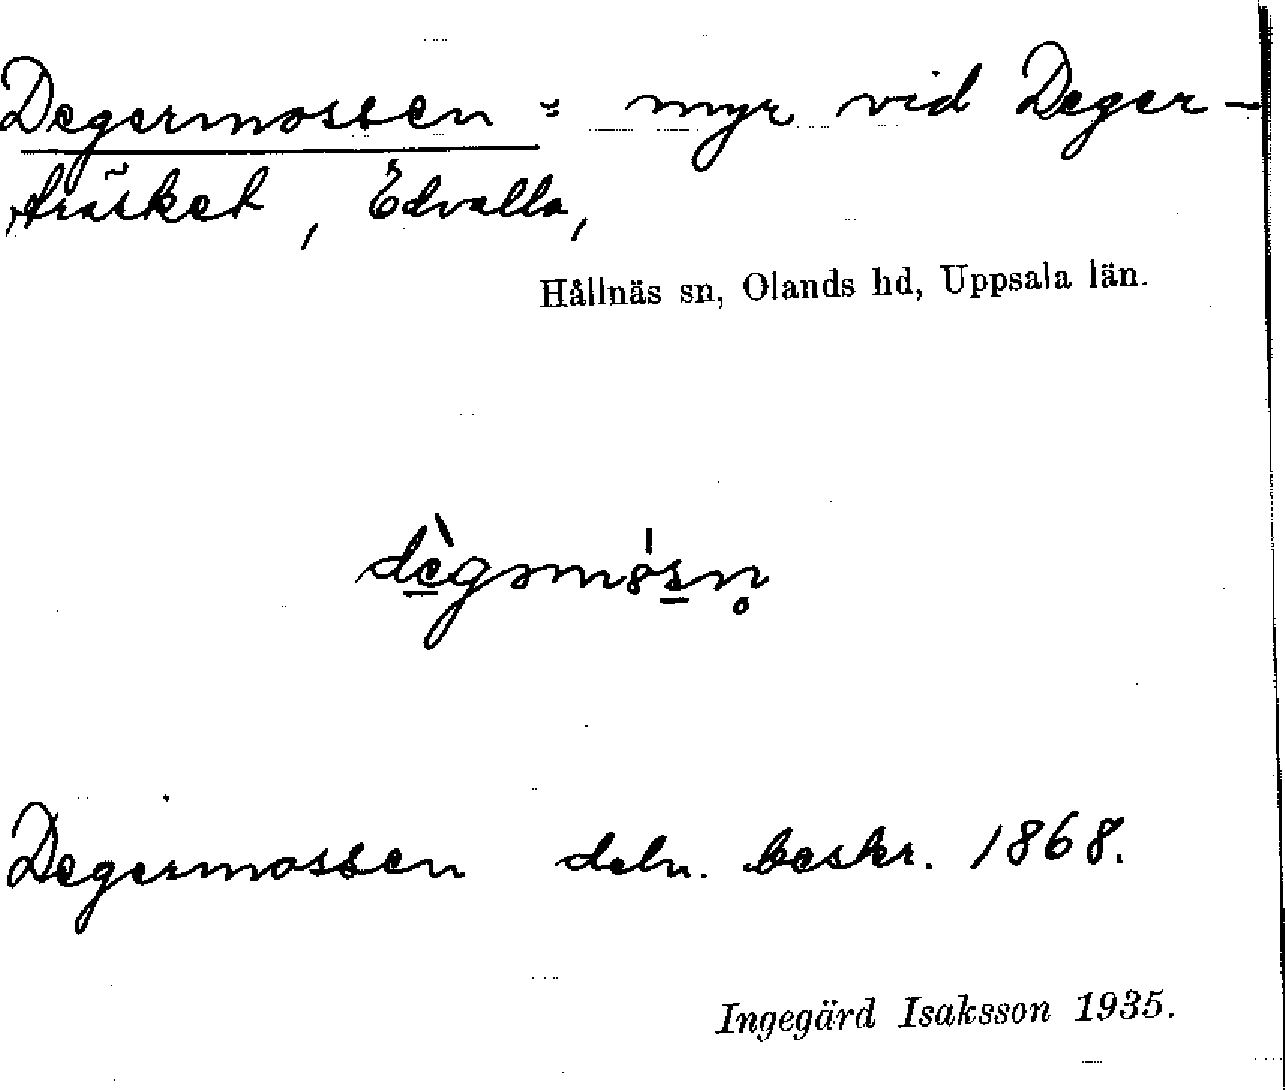 Degermossen = myr vid Deger-
träsket, Edvalla,
Hållnäs sn, Olands hd, Uppsala län.
Degermossen deln. beskr. 1868.
Ingegärd Isaksson 1935.